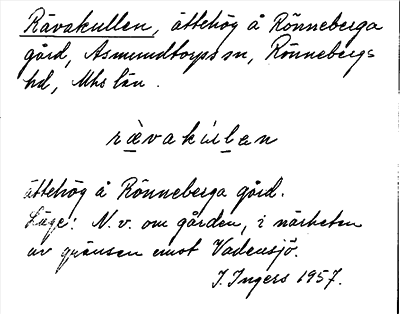 Rävakullen, ättehög å Rönneberga
gård, Asmundtorps sn, Rönnebergs
hd, Mhs län.
rävakúllan
ättehög å Rönneberga gård.
Läge: N.v. om gården, i närheten
av gränsen emot Vadensjö.
I. Ingers 1957.